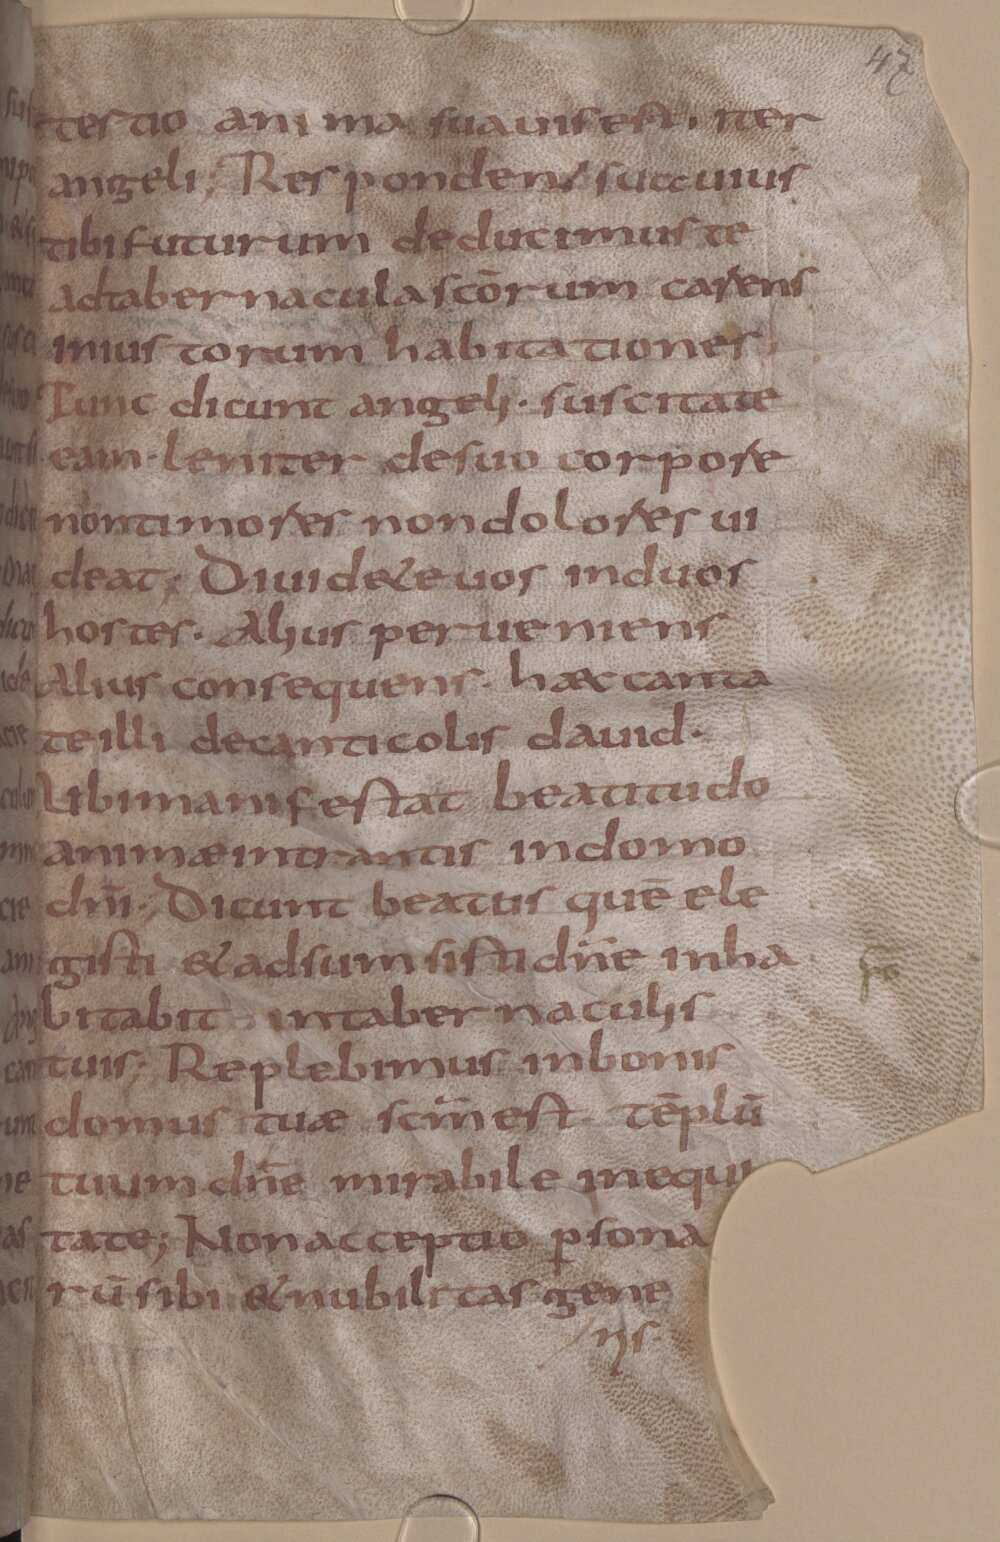 47
testio anima suauis est. iter
angeli; Respondent succuius
tibi futurum deducimus te
ad tabernacula scōrum carens
inius torum habitationes;
Tunc dicunt angeli. suscitate
eam. leniter de suo corpore
non timores non dolores ui
deat; Diuidete uos in duos
hostes. Alius perueniens
Alius consequens. hæc canta
te illi de canticolis dauid.
Ubi manifestat beatitudo
animæ intrantis in domo
dn̄i. Dicunt beatus quē ele
gisti & adsumsisti dn̄e inha
bitabit in tabernaculis
tuis. Replebimus in bonis
domus tuæ scm̄ est. tēplū
tuum dn̄e mirabile in equi
tate; Non acceptio ꝑsona
rū sibi & nubilitas gene
ris.